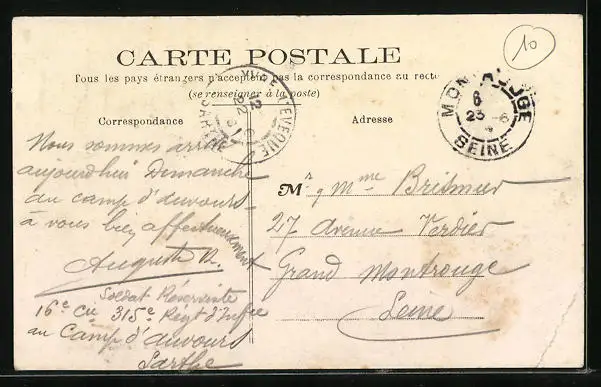 10
CARTE POSTALE
Tous les pays étrangers n'acceptent pas la correspondance au recto
(se renseigner à la poste)
Correspondance
Adresse
YVRE L'EVEQUE
SARTHE
22
MONTROUGE
6
23 -8
SEINE
Nous sommes arrivé
aujourdhui Dimanche
au camp d'auvours
à vous bien affectueusement
Auguste
Soldat Réserviste
16e Cie 315e Régt d'Infie
au Camp d'auvours
Sarthe
Mr & Mme
27 Avenue Verdier
Grand Montrouge
Seine